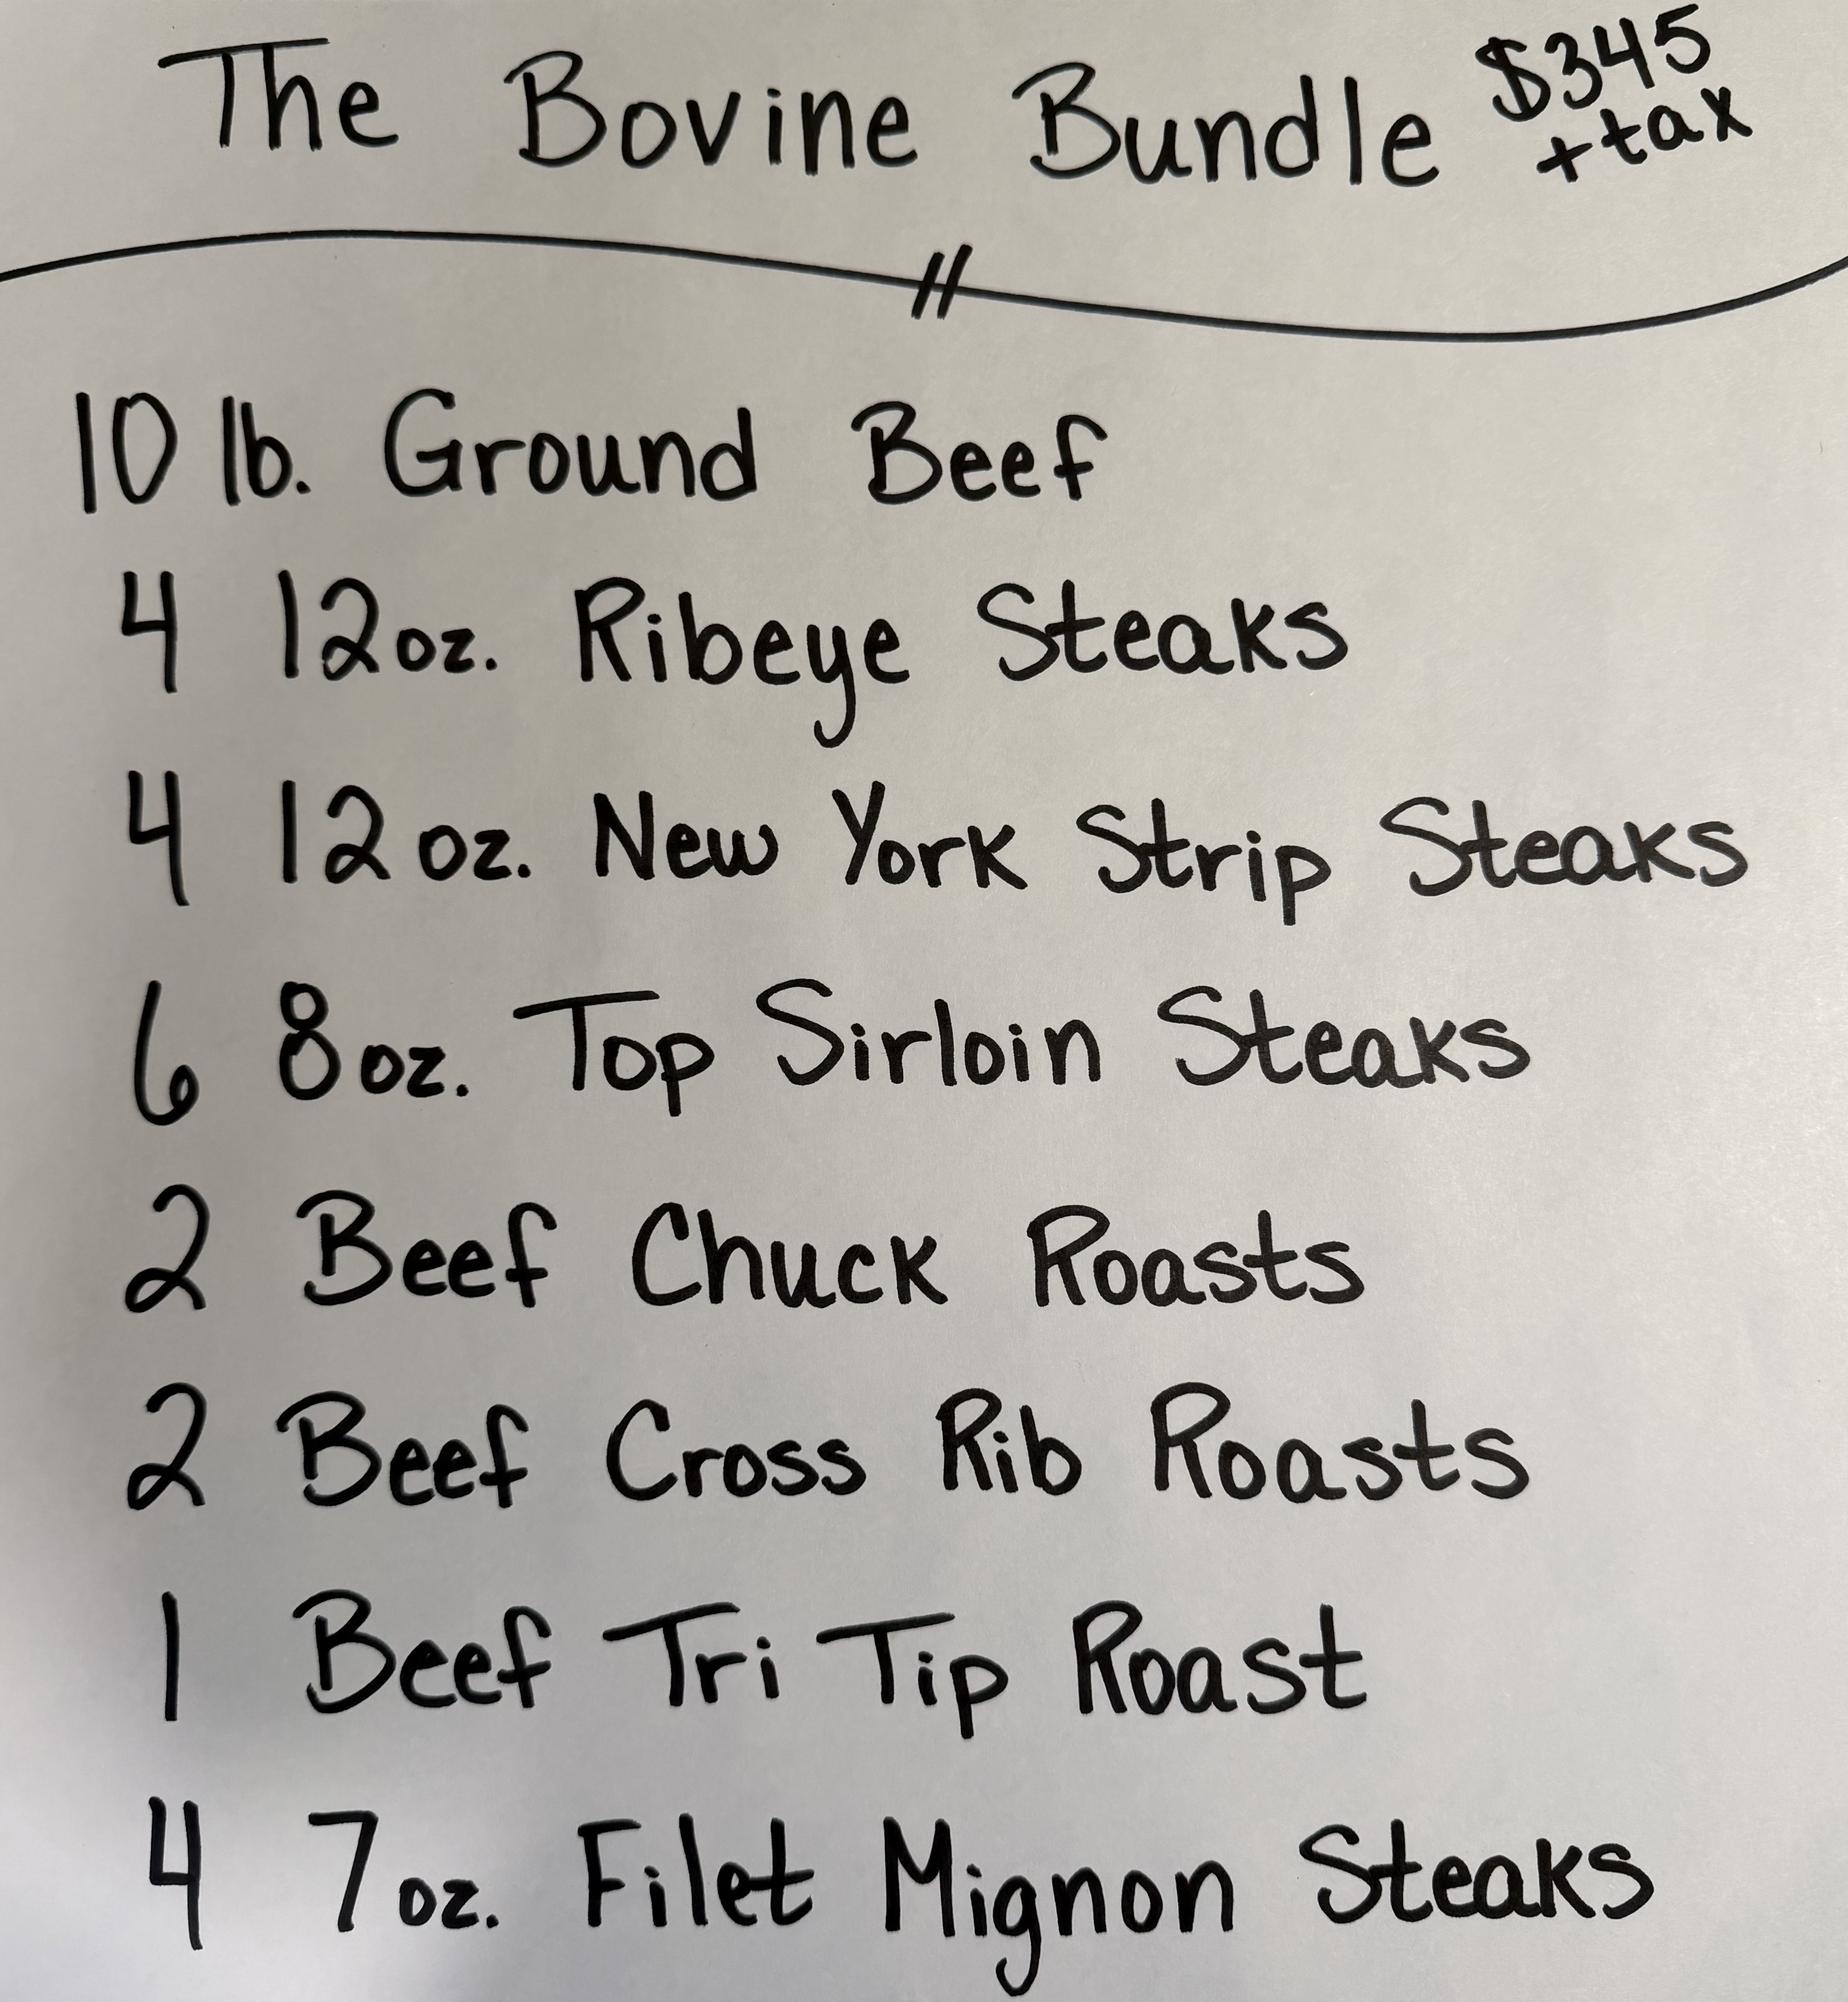 The Bovine Bundle $345
+tax
10 lb. Ground Beef
4 12oz. Ribeye Steaks
4 12oz. New York Strip Steaks
6 8oz. Top Sirloin Steaks
2 Beef Chuck Roasts
2 Beef Cross Rib Roasts
1 Beef Tri Tip Roast
4 7oz. Filet Mignon Steaks